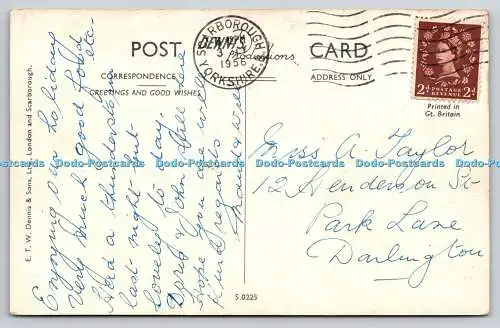 POST CARD
DENNIS
Productions
SCARBOROUGH
YORKSHIRE
1956
CORRESPONDENCE
ADDRESS ONLY
GREETINGS AND GOOD WISHES
2D POSTAGE REVENUE 2D
Printed in
Gt. Britain
E. T. W. Dennis & Sons, Ltd., London and Scarborough.
Enjoying our holiday
Very much good food etc.
Had a thunderstorm
last night but
lovely today.
Doris & John
Hope you are well
Kind regards
Miss A. Taylor
12 Henderson St
Park Lane
Darlington
S.0225
Dodo-Postcards Dodo-Postcards Dodo-Postcards Dodo-Postcards Dodo-Postcards Dodo-Postcards